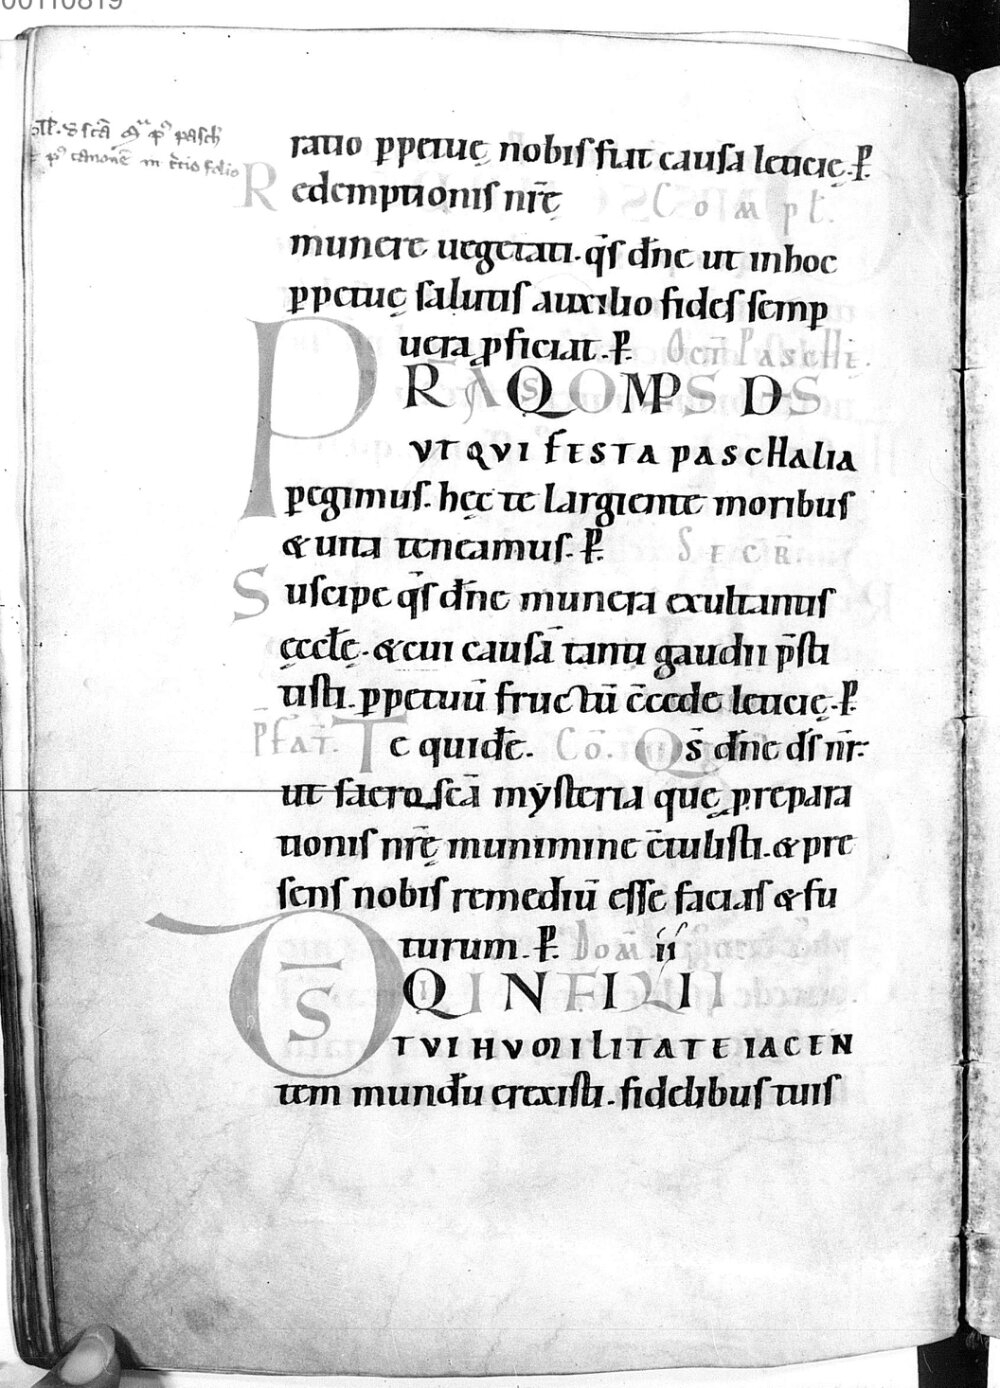 00110819
ratio ꝑpetuę nobis fiat causa letitię. ꝑ
Redemptionis nr̄ę Compl̄.
munere uegetati. q̄s dn̄e ut in hoc
ꝑpetuę salutis auxilio fides semꝑ
uera ꝓficiat. ꝑ. Oct̄ Paschę.
PRA Q OMPS DS
VT QVI FESTA PASCHALIA
pegimus. hęc te largiente moribus
& uita teneamus. ꝑ. SECR̄.
Suscipe q̄s dn̄e munera exultantis
ęccl̄ę. & cui causā tanti gaudii p̄sti
tisti. ꝑpetuū fructū c̄cede letitię. ꝑ
P̄fAT̄. Te quidē. Cō. Qs̄ dn̄e ds̄ nr̄:
ut sacrosc̄ā mysteria quę ꝓ repara
tionis nr̄ę munimine c̄tulisti. & pre
sens nobis remediū esse facias & fu
turum. ꝑ. Dom̄ ii
DS̄ QI IN FILII
TVI HVMILITATE IACEN
tem mundū erexisti. fidelibus tuis